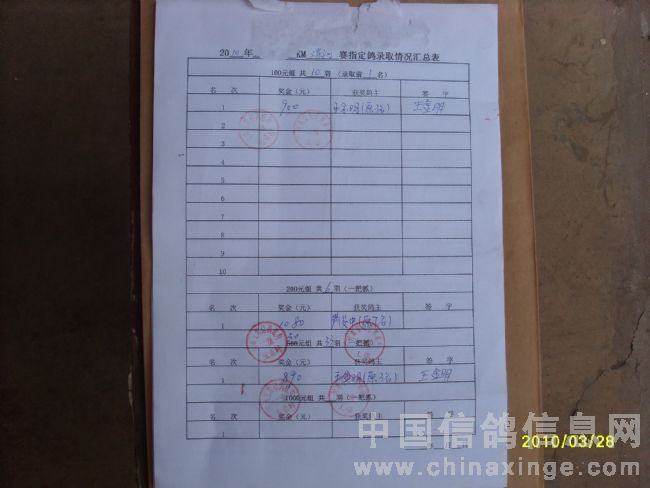 2010年 KM 赛指定鸽录取情况汇总表
100元组 共10羽 (录取前1名)
名 次 奖金(元) 获奖鸽主 签 字
1 900 王金明(原3名) 王金明
2
3
4
5
6
7
8
9
10
200元组 共6羽(一把抓)
名 次 奖金(元) 获奖鸽主 签 字
1 1080
500元组 共 羽(一把抓)
名 次 奖金(元) 获奖鸽主 签 字
1 890 王金明(原3名) 王金明
1000元组 共 羽(一把抓)
名 次 奖金(元) 获奖鸽主 签 字
1
中国信鸽信息网
www.chinaxinge.com
2010/03/28